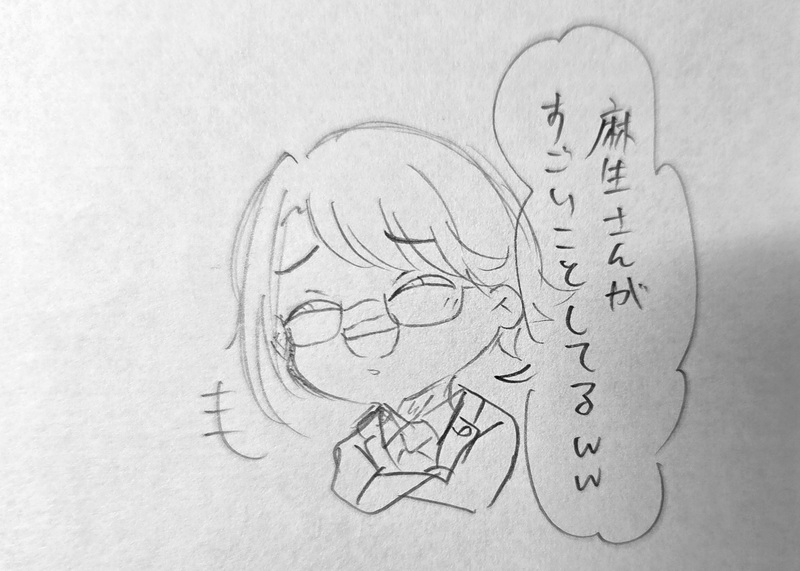 麻生さんが
すごいことしてるww